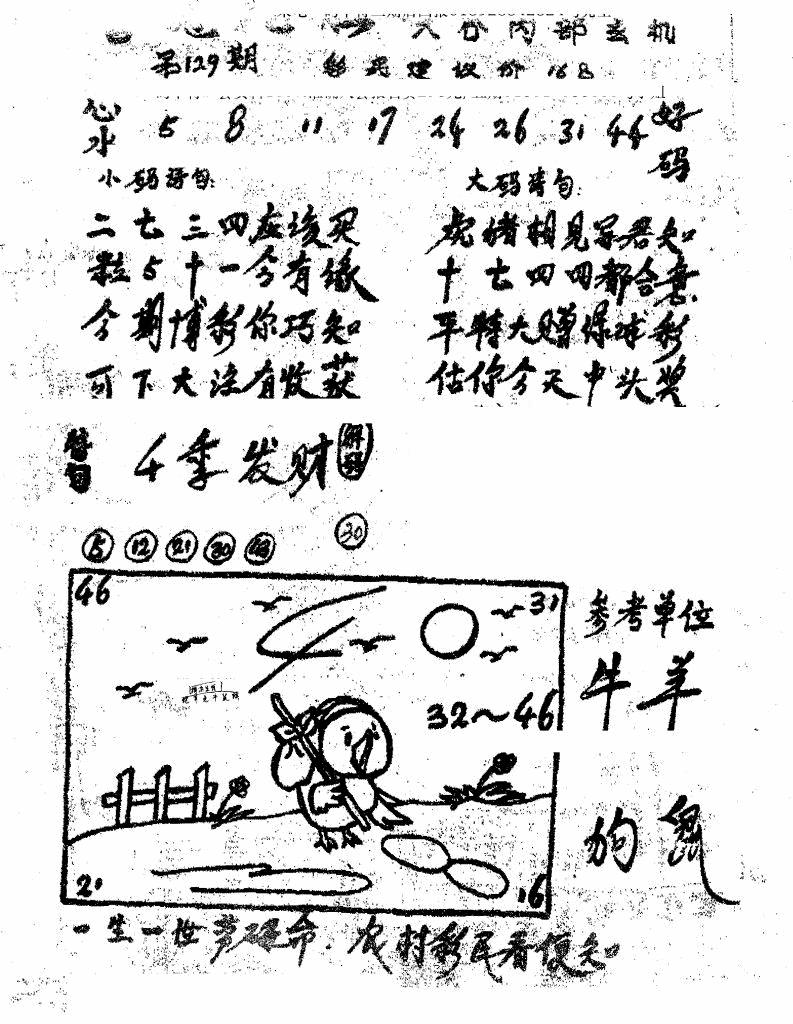 六合内部玄机
第129期 彩民建议价168
心水 5 8 11 17 24 26 31 44 好码
小码诗句: 大码诗句:
二七三四应该买 虎猪相见等君知
粒5十一今有缘 十七四四都合意
今期博彩你巧知 平特大赠保球彩
可下大注有收获 估你今天中头奖
特句 千季发财 解码
5 12 21 30 30
46 31 参考单位
牛羊
32～46
狗 鼠
21 16
一生一世劳碌命. 农村彩民看便知